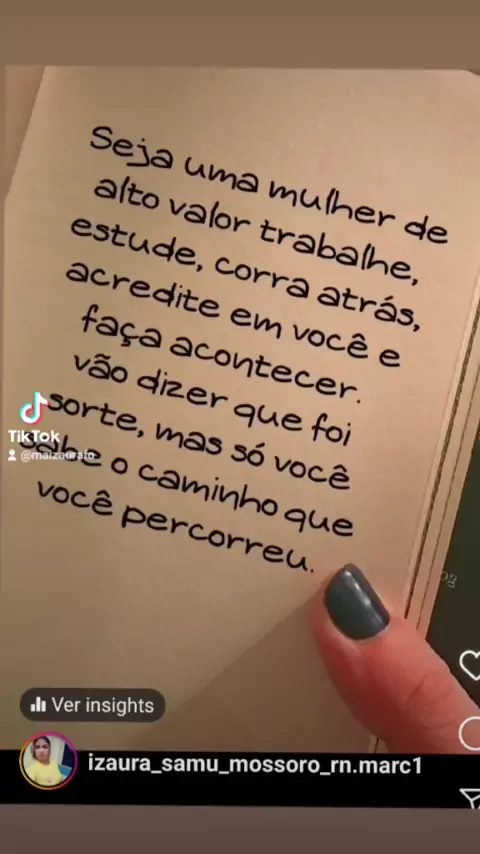 Seja uma mulher de
alto valor trabalhe,
estude, corra atrás,
acredite em você e
faça acontecer.
vão dizer que foi
sorte, mas só você
sabe o caminho que
você percorreu.
TikTok
Ver insights
izaura_samu_mossoro_rn.marc1